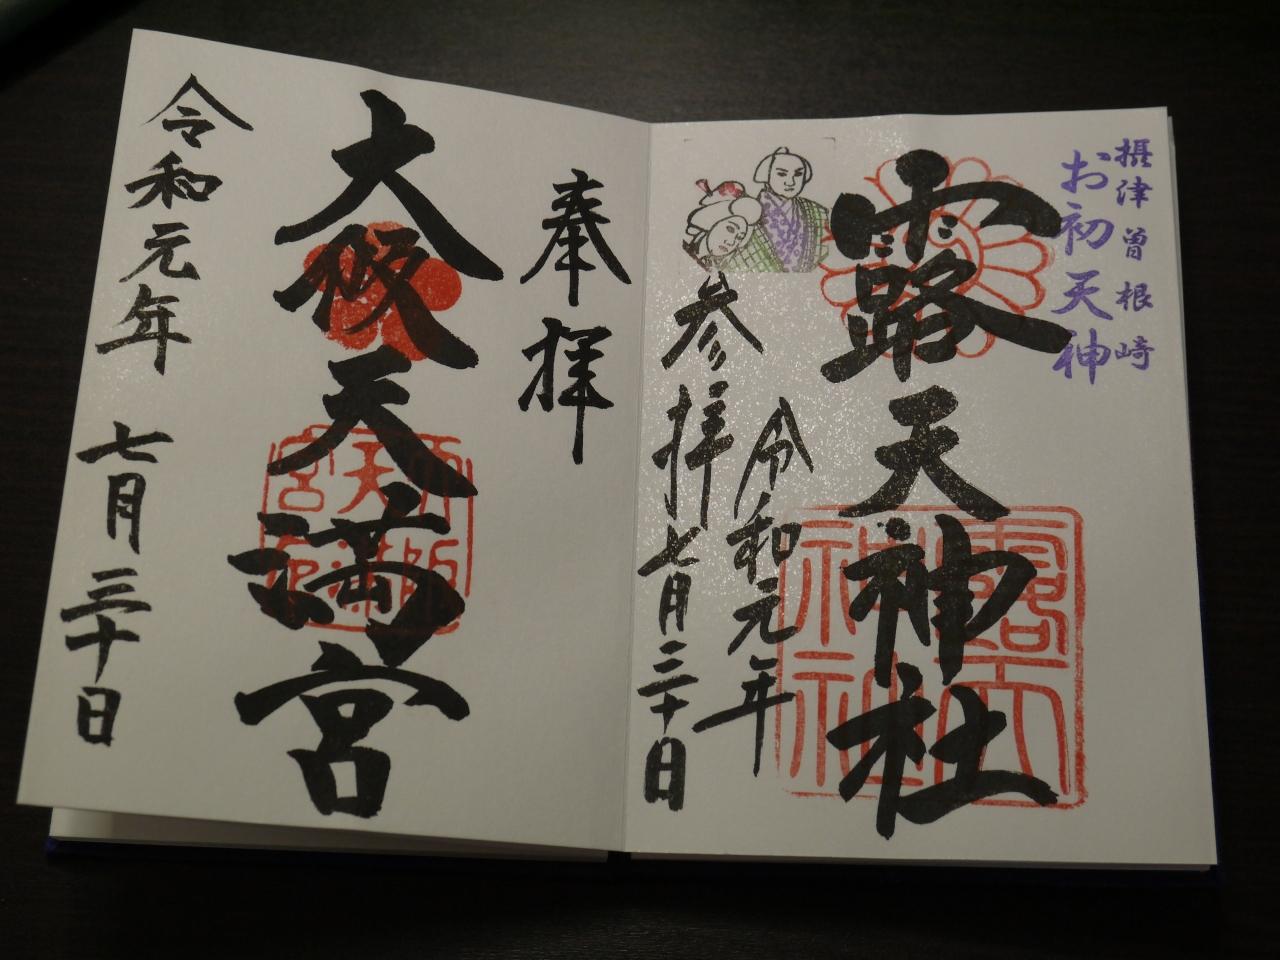 摂津曽根崎
お初天神
露天神社
令和元年
参拝七月三十日
奉拝
大阪天満宮
令和元年七月三十日